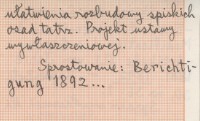 ułatwienia rozbudowy spiskich
osad tatrz. Projekt ustawy
wywłaszczeniowej.
Sprostowanie: Berichti-
gung 1892...